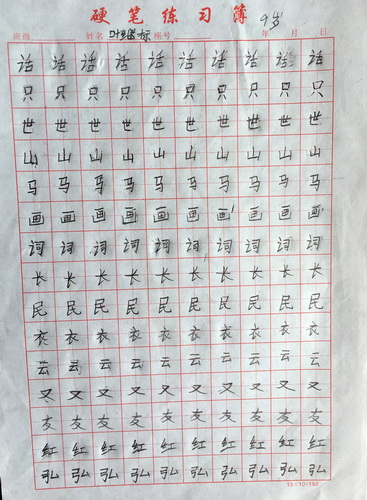 硬笔练习簿 9岁
班级 姓名 叶 标 座号 年 月 日
话 话 话 话 话 话 话 话 话 话
只 只 只 只 只 只 只 只 只 只
世 世 世 世 世 世 世 世 世 世
山 山 山 山 山 山 山 山 山 山
马 马 马 马 马 马 马 马 马 马
画 画 画 画 画 画 画 画 画 画
词 词 词 词 词 词 词 词 词 词
长 长 长 长 长 长 长 长 长 长
民 民 民 民 民 民 民 民 民 民
衣 衣 衣 衣 衣 衣 衣 衣 衣 衣
云 云 云 云 云 云 云 云 云 云
又 又 又 又 又 又 又 又 又 又
友 友 友 友 友 友 友 友 友 友
红 红 红 红 红 红 红 红 红 红
弘 弘 弘 弘 弘 弘 弘 弘 弘 弘
15×10=150